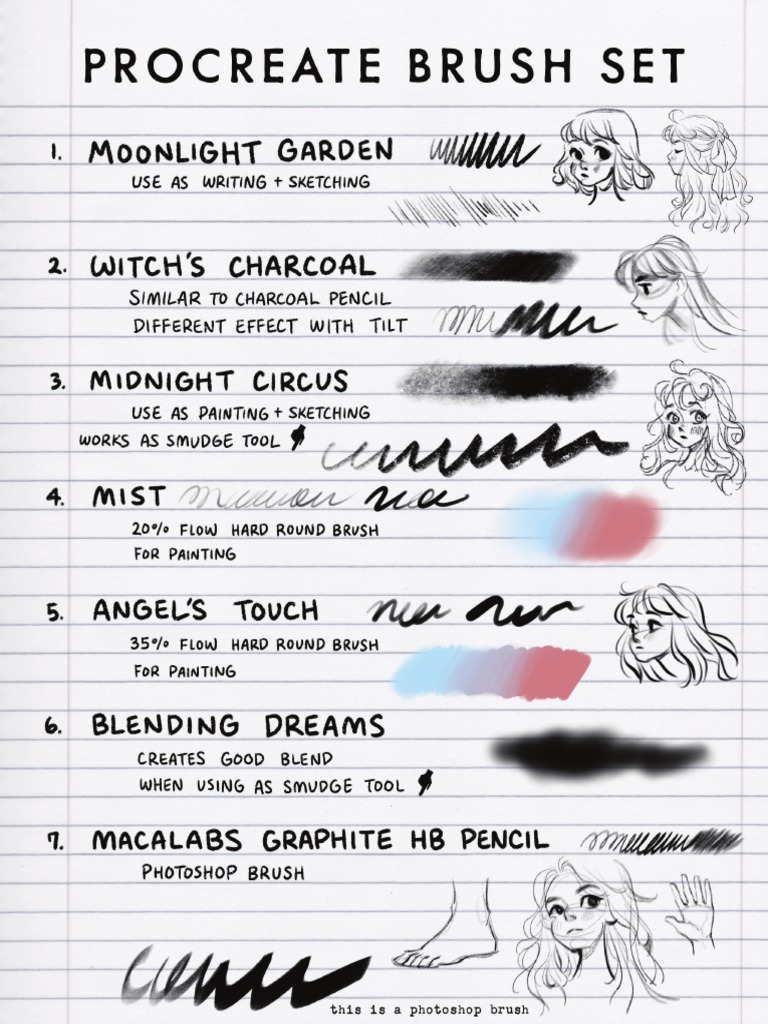 PROCREATE BRUSH SET
1. MOONLIGHT GARDEN
USE AS WRITING + SKETCHING
2. WITCH'S CHARCOAL
SIMILAR TO CHARCOAL PENCIL
DIFFERENT EFFECT WITH TILT
3. MIDNIGHT CIRCUS
USE AS PAINTING + SKETCHING
WORKS AS SMUDGE TOOL
4. MIST
20% FLOW HARD ROUND BRUSH
FOR PAINTING
5. ANGEL'S TOUCH
35% FLOW HARD ROUND BRUSH
FOR PAINTING
6. BLENDING DREAMS
CREATES GOOD BLEND
WHEN USING AS SMUDGE TOOL
7. MACALABS GRAPHITE HB PENCIL
PHOTOSHOP BRUSH
this is a photoshop brush